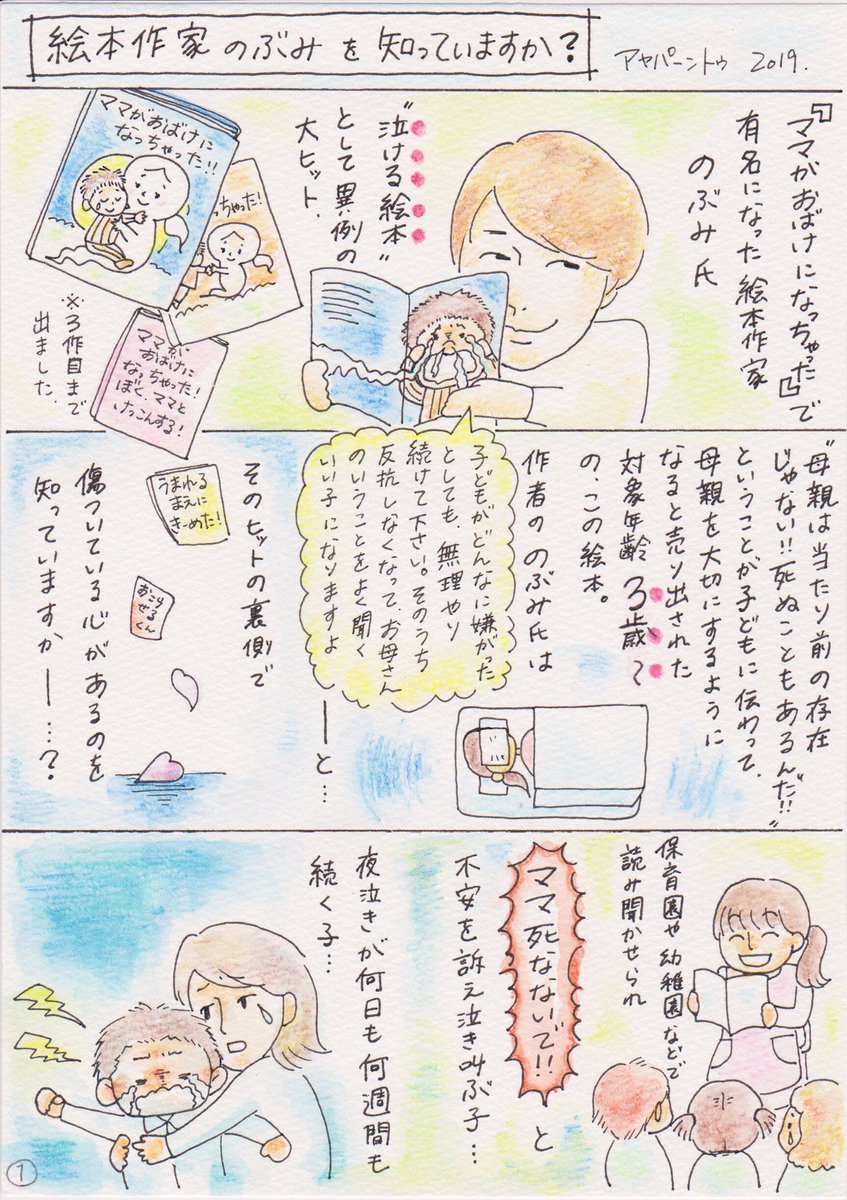 絵本作家 のぶみ を 知っていますか?
アヤパーントゥ 2019.
『ママがおばけになっちゃった』で
有名になった 絵本作家
のぶみ氏
"泣ける絵本"
として異例の
大ヒット.
ママがおばけに
なっちゃった!!
っちゃった!
ママが
おばけに
なっちゃった!
ぼく、ママと
けっこんする!
※3作目まで
出ました.
"母親は当たり前の存在
じゃない!!死ぬこともあるんだ!!"
ということが子どもに伝わって、
母親を大切にするように
なると売り出された
対象年齢 3歳〜
の、この絵本。
作者の のぶみ氏は
子どもがどんなに嫌がった
としても、無理やり
続けて下さい。そのうち
反抗しなくなって、お母さん
のいうことをよく聞く
いい子になりますよ
ーーと…
そのヒットの裏側で
傷ついている心があるのを
知っていますかー…?
うまれる
まえに
きーめた!
おこら
せる
くん
保育園や幼稚園などで
読み聞かせられ
ママ死なないで!!
と
不安を訴え泣き叫ぶ子…
夜泣きが何日も何週間も
続く子…
1